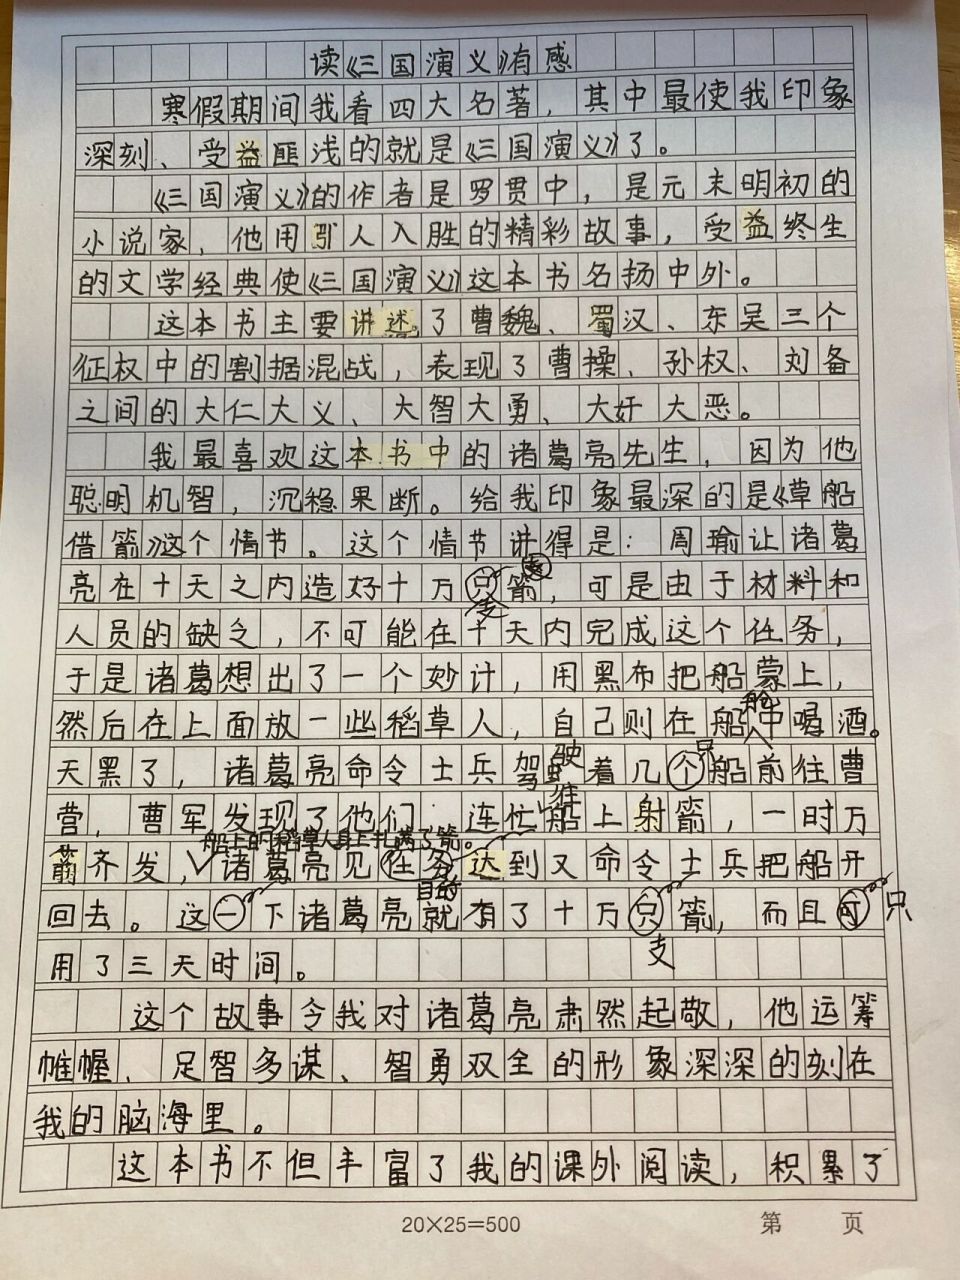 读《三国演义》有感
寒假期间我看四大名著，其中最使我印象
深刻、受益匪浅的就是《三国演义》了。
《三国演义》的作者是罗贯中，是元末明初的
小说家，他用引人入胜的精彩故事，受益终生
的文学经典使《三国演义》这本书名扬中外。
这本书主要讲述了曹魏、蜀汉、东吴三个
征权中的割据混战，表现了曹操、孙权、刘备
之间的大仁大义、大智大勇、大奸大恶。
我最喜欢这本书中的诸葛亮先生，因为他
聪明机智，沉稳果断。给我印象最深的是《草船
借箭》这个情节。这个情节讲得是：周瑜让诸葛
亮在十天之内造好十万只箭，可是由于材料和
支
人员的缺乏，不可能在十天内完成这个任务，
于是诸葛想出了一个妙计，用黑布把船蒙上，
舱
然后在上面放一些稻草人，自己则在船中喝酒。
只
天黑了，诸葛亮命令士兵驾驶着几个船前往曹
往
营，曹军发现了他们，连忙船上射箭，一时万
船上的稻草人身上扎满了箭。
箭齐发，诸葛亮见任务达到又命令士兵把船开
目的
回去。这一下诸葛亮就有了十万只箭，而且可只
支
用了三天时间。
这个故事令我对诸葛亮肃然起敬，他运筹
帷幄、足智多谋、智勇双全的形象深深的刻在
我的脑海里。
这本书不但丰富了我的课外阅读，积累了
20×25=500 第 页